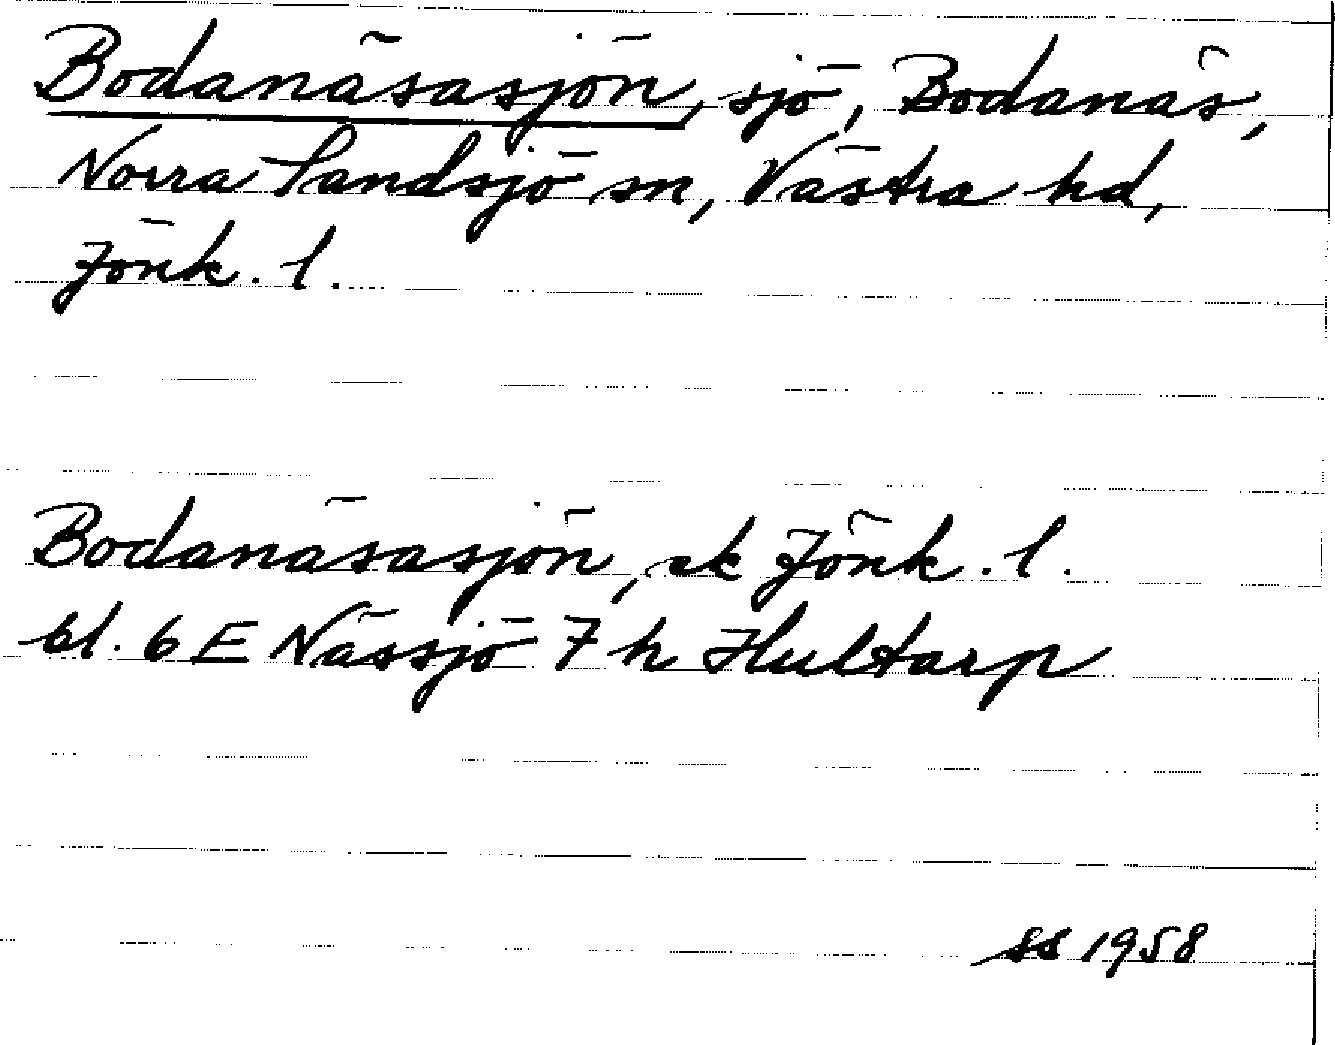 Bodanäsasjön, sjö, Bodanäs,
Norra Sandsjö sn, Västra hd,
Jönk. l.
Bodanäsasjön, ek Jönk. l.
bl. 6 E Nässjö 7 h Hultarp
SS 1958